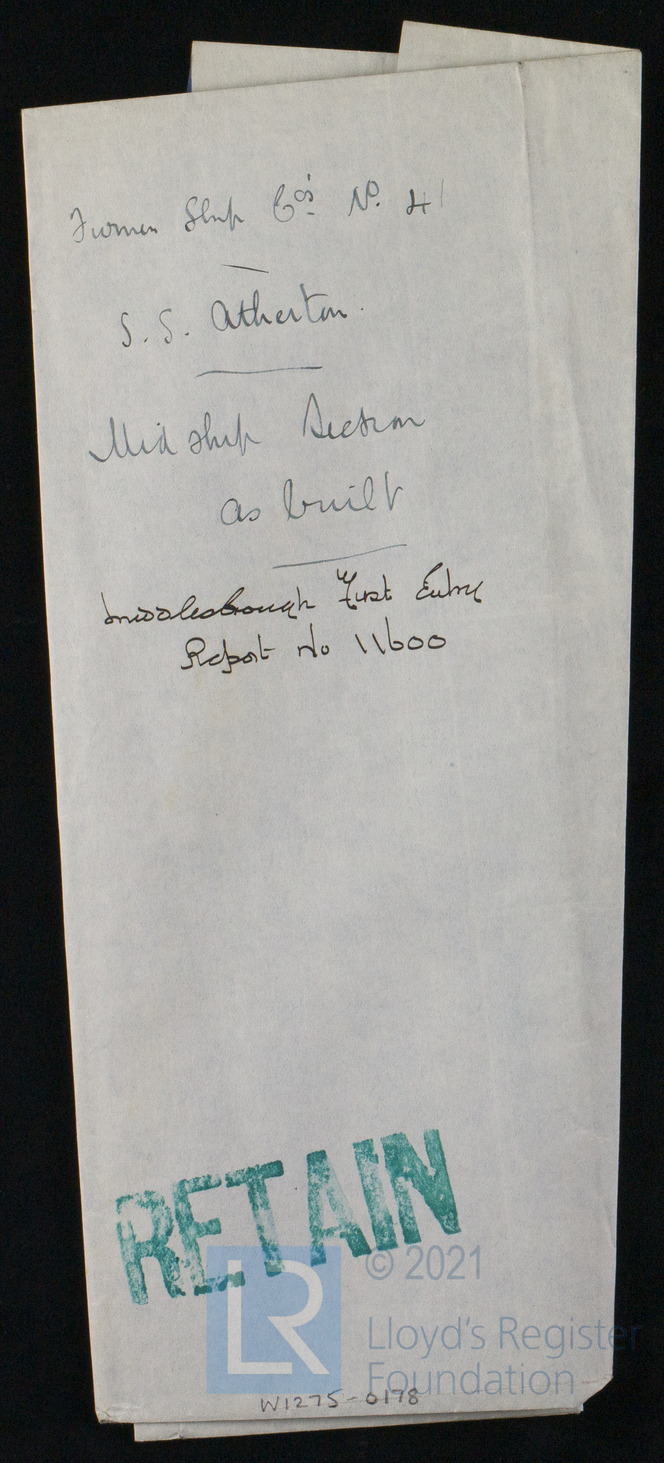 Furness Ship Cos. No. 41
S.S. Atherton.
Midship Section
as built
Middlesbrough First Entry
Report No 11600
RETAIN
LR
© 2021
Lloyd's Register
Foundation
W1275-0178